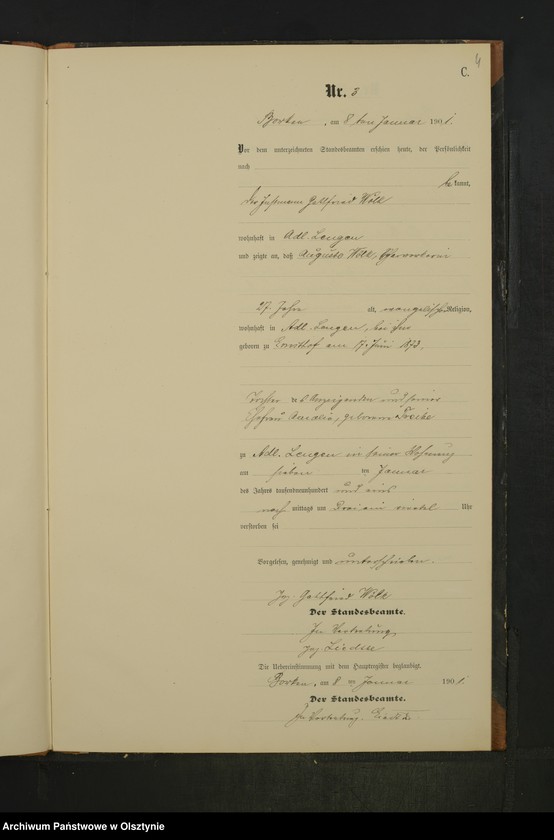 4
C.
Nr. 3
Borken, am 8 ten Januar 1901.
Vor dem unterzeichneten Standesbeamten erschien heute, der Persönlichkeit
nach
bekannt,
der Instmann Gottfried Wilk
wohnhaft in Adl. Lengen
und zeigte an, daß Auguste Wilk,
27 Jahr alt, evangelischer Religion,
wohnhaft in Adl. Lengen, bei ihm
geboren zu am 17. Juni 1873,
Tochter des Anzeigenden und seiner
Ehefrau geborene
zu Adl. Lengen in seiner Wohnung
am sieben ten Januar
des Jahres tausendneunhundert und eins
nach mittags um drei ein viertel Uhr
verstorben sei
Vorgelesen, genehmigt und unterschrieben.
gez. Gottfried Wilk
Der Standesbeamte.
In Vertretung
gez.
Die Uebereinstimmung mit dem Hauptregister beglaubigt.
Borken, am 8 ten Januar 1901.
Der Standesbeamte.
In Vertretung.
Archiwum Państwowe w Olsztynie